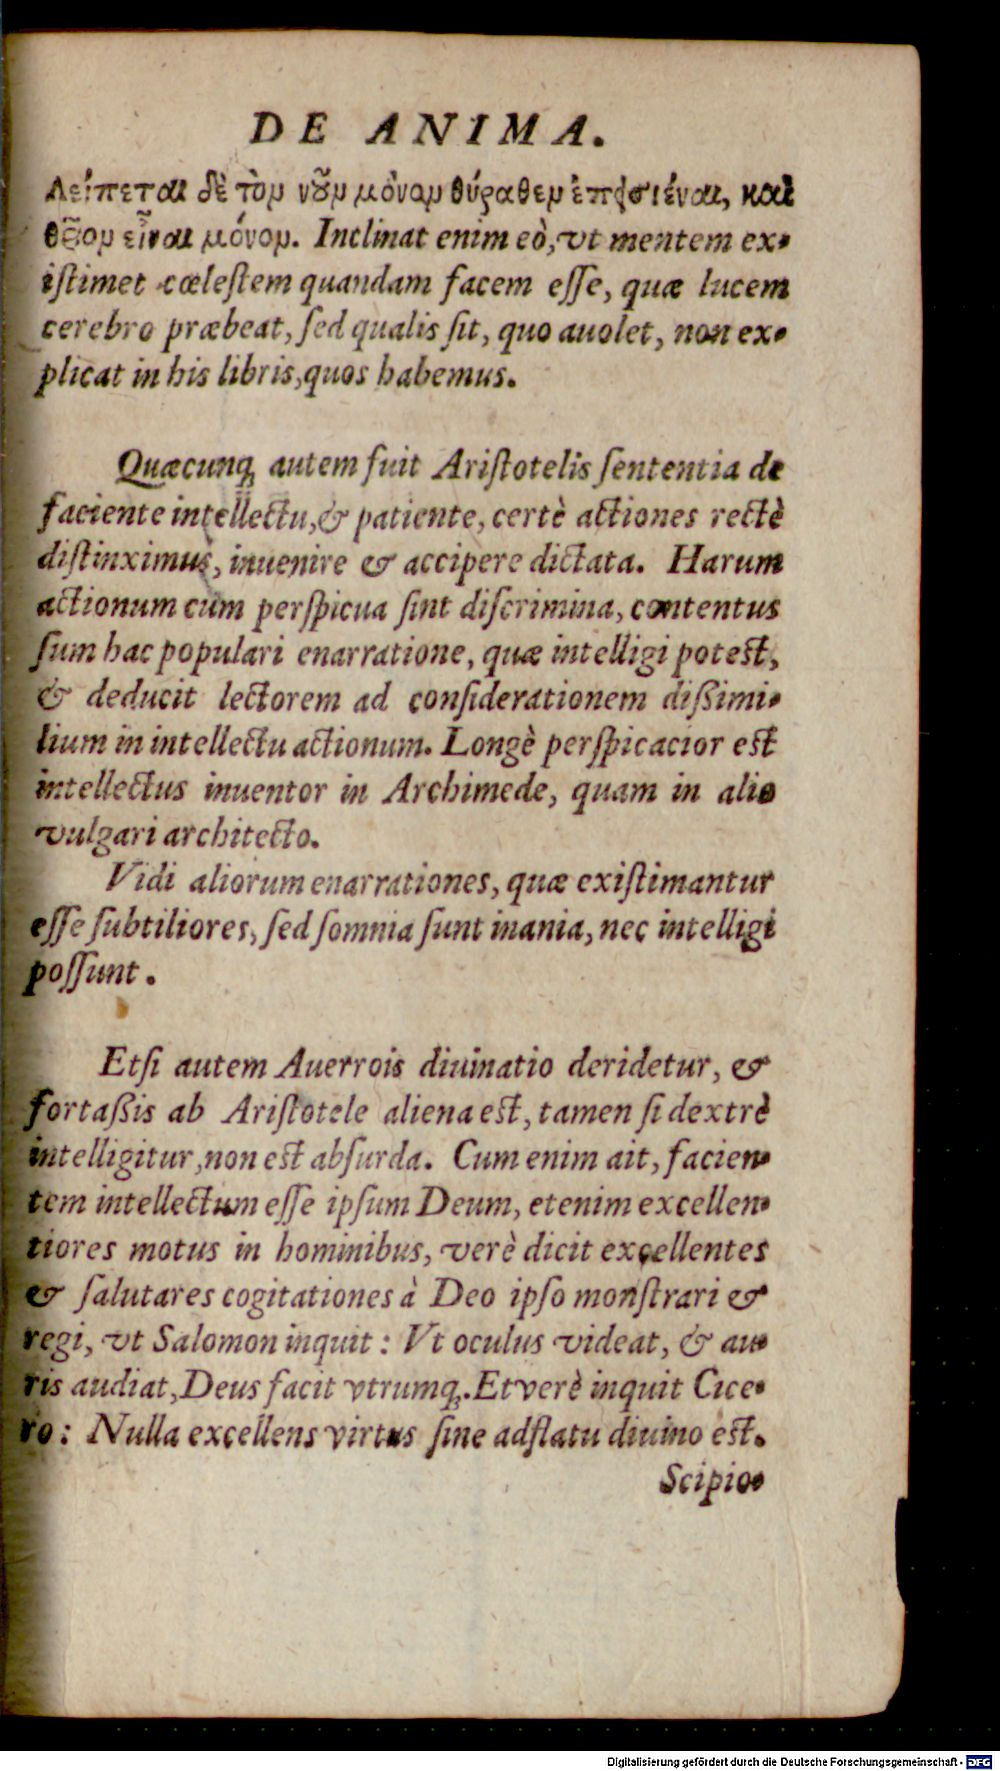 DE ANIMA.
Λείπεται δὲ τὸν νοῦν μόναν θύραθεν ἐπεισιέναι, καὶ
θεῖον εἶναι μόνον. Inclinat enim eò, vt mentem ex-
iſtimet cœleſtem quandam facem eſſe, quæ lucem
cerebro præbeat, ſed qualis ſit, quo auolet, non ex-
plicat in his libris, quos habemus.
Quæcunq; autem fuit Ariſtotelis ſententia de
faciente intellectu, & patiente, certè actiones rectè
diſtinximus, inuenire & accipere dictata. Harum
actionum cum perſpicua ſint diſcrimina, contentus
ſum hac populari enarratione, quæ intelligi poteſt,
& deducit lectorem ad conſiderationem dißimi-
lium in intellectu actionum. Longè perſpicacior eſt
intellectus inuentor in Archimede, quam in alio
vulgari architecto.
Vidi aliorum enarrationes, quæ exiſtimantur
eſſe ſubtiliores, ſed ſomnia ſunt inania, nec intelligi
poſſunt.
Etſi autem Auerrois diuinatio deridetur, &
fortaßis ab Ariſtotele aliena eſt, tamen ſi dextrè
intelligitur, non eſt abſurda. Cum enim ait, facien-
tem intellectum eſſe ipſum Deum, etenim excellen-
tiores motus in hominibus, verè dicit excellentes
& ſalutares cogitationes à Deo ipſo monſtrari &
regi, vt Salomon inquit: Vt oculus videat, & au-
ris audiat, Deus facit vtrumq;. Et verè inquit Cice-
ro: Nulla excellens virtus ſine adflatu diuino eſt.
Scipio-
Digitalisierung gefördert durch die Deutsche Forschungsgemeinschaft - DFG